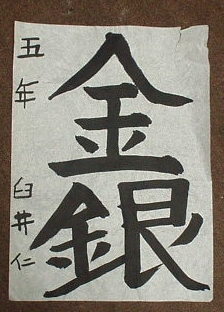 金銀
五年 臼井仁